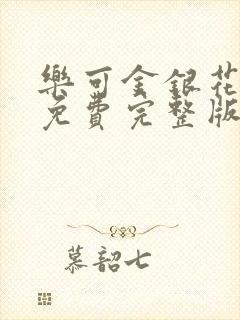 樂可金銀花
免費完整版
慕韶七